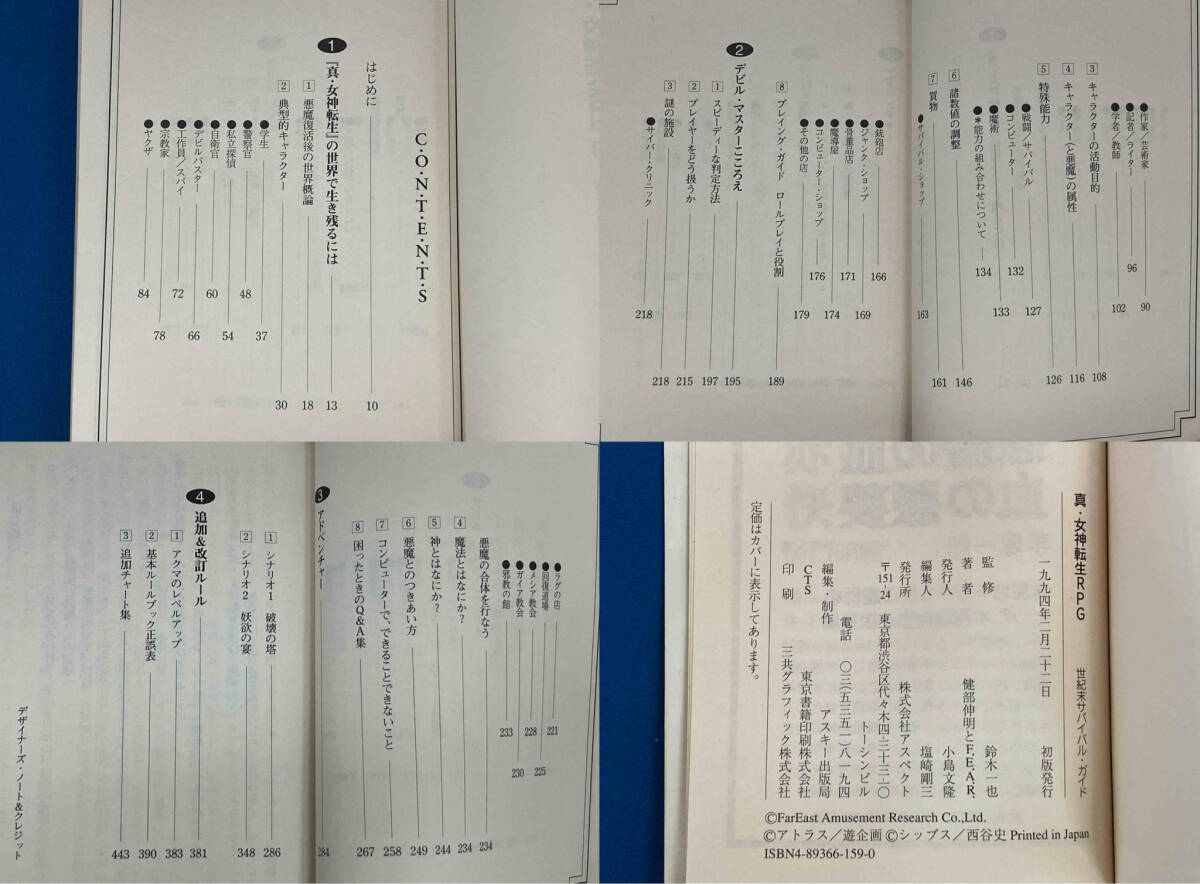 C・O・N・T・E・N・T・S
はじめに 10
1 『真・女神転生』の世界で生き残るには 13
1 悪魔復活後の世界概論 18
2 典型的キャラクター 30
●学生 37
●警察官 48
●私立探偵 54
●自衛官 60
●デビルバスター 66
●工作員／スパイ 72
●宗教家 78
●ヤクザ 84
●作家／芸術家 90
●記者／ライター 96
●学者／教師 102
3 キャラクターの活動目的 108
4 キャラクター（と悪魔）の属性 116
5 特殊能力 126
●戦闘／サバイバル 127
●コンピューター 132
●魔術 133
●＊能力の組み合わせについて 134
6 諸数値の調整 146
7 買物 161
●サバイバル・ショップ 163
●銃砲店 166
●ジャンク・ショップ 169
●骨董品店 171
●魔導屋 174
●コンピューター・ショップ 176
●その他の店 179
8 プレイング・ガイド ロールプレイと役割 189
2 デビル・マスターこころえ 195
1 スピーディーな判定方法 197
2 プレイヤーをどう扱うか 215
3 謎の施設 218
●サイバー・クリニック 218
●ラグの店 221
●回復道場 225
●メシア教会 228
●ガイア教会 230
●邪教の館 233
悪魔の合体を行なう 234
4 魔法とはなにか？ 234
5 神とはなにか？ 244
6 悪魔とのつきあい方 249
7 コンピューターで、できることできないこと 258
8 困ったときのQ&A集 267
3 アドベンチャー 284
1 シナリオ1 破壊の塔 286
2 シナリオ2 妖欲の宴 348
4 追加&改訂ルール 381
1 アクマのレベルアップ 383
2 基本ルールブック正誤表 390
3 追加チャート集 443
デザイナーズ・ノート&クレジット
真・女神転生RPG 世紀末サバイバル・ガイド
一九九四年二月二十二日 初版発行
監修 鈴木一也
著者 健部伸明とF.E.A.R.
発行人 小島文隆
編集人 塩崎剛三
発行所 株式会社アスペクト
〒151-24 東京都渋谷区代々木四-三十三-一〇
トーシンビル
電話 〇三(五三五一)八一九四
編集・制作 アスキー出版局
CTS 東京書籍印刷株式会社
印刷 三共グラフィック株式会社
定価はカバーに表示してあります。
©FarEast Amusement Research Co.,Ltd.
©アトラス／遊企画 ©シップス／西谷史 Printed in Japan
ISBN4-89366-159-0